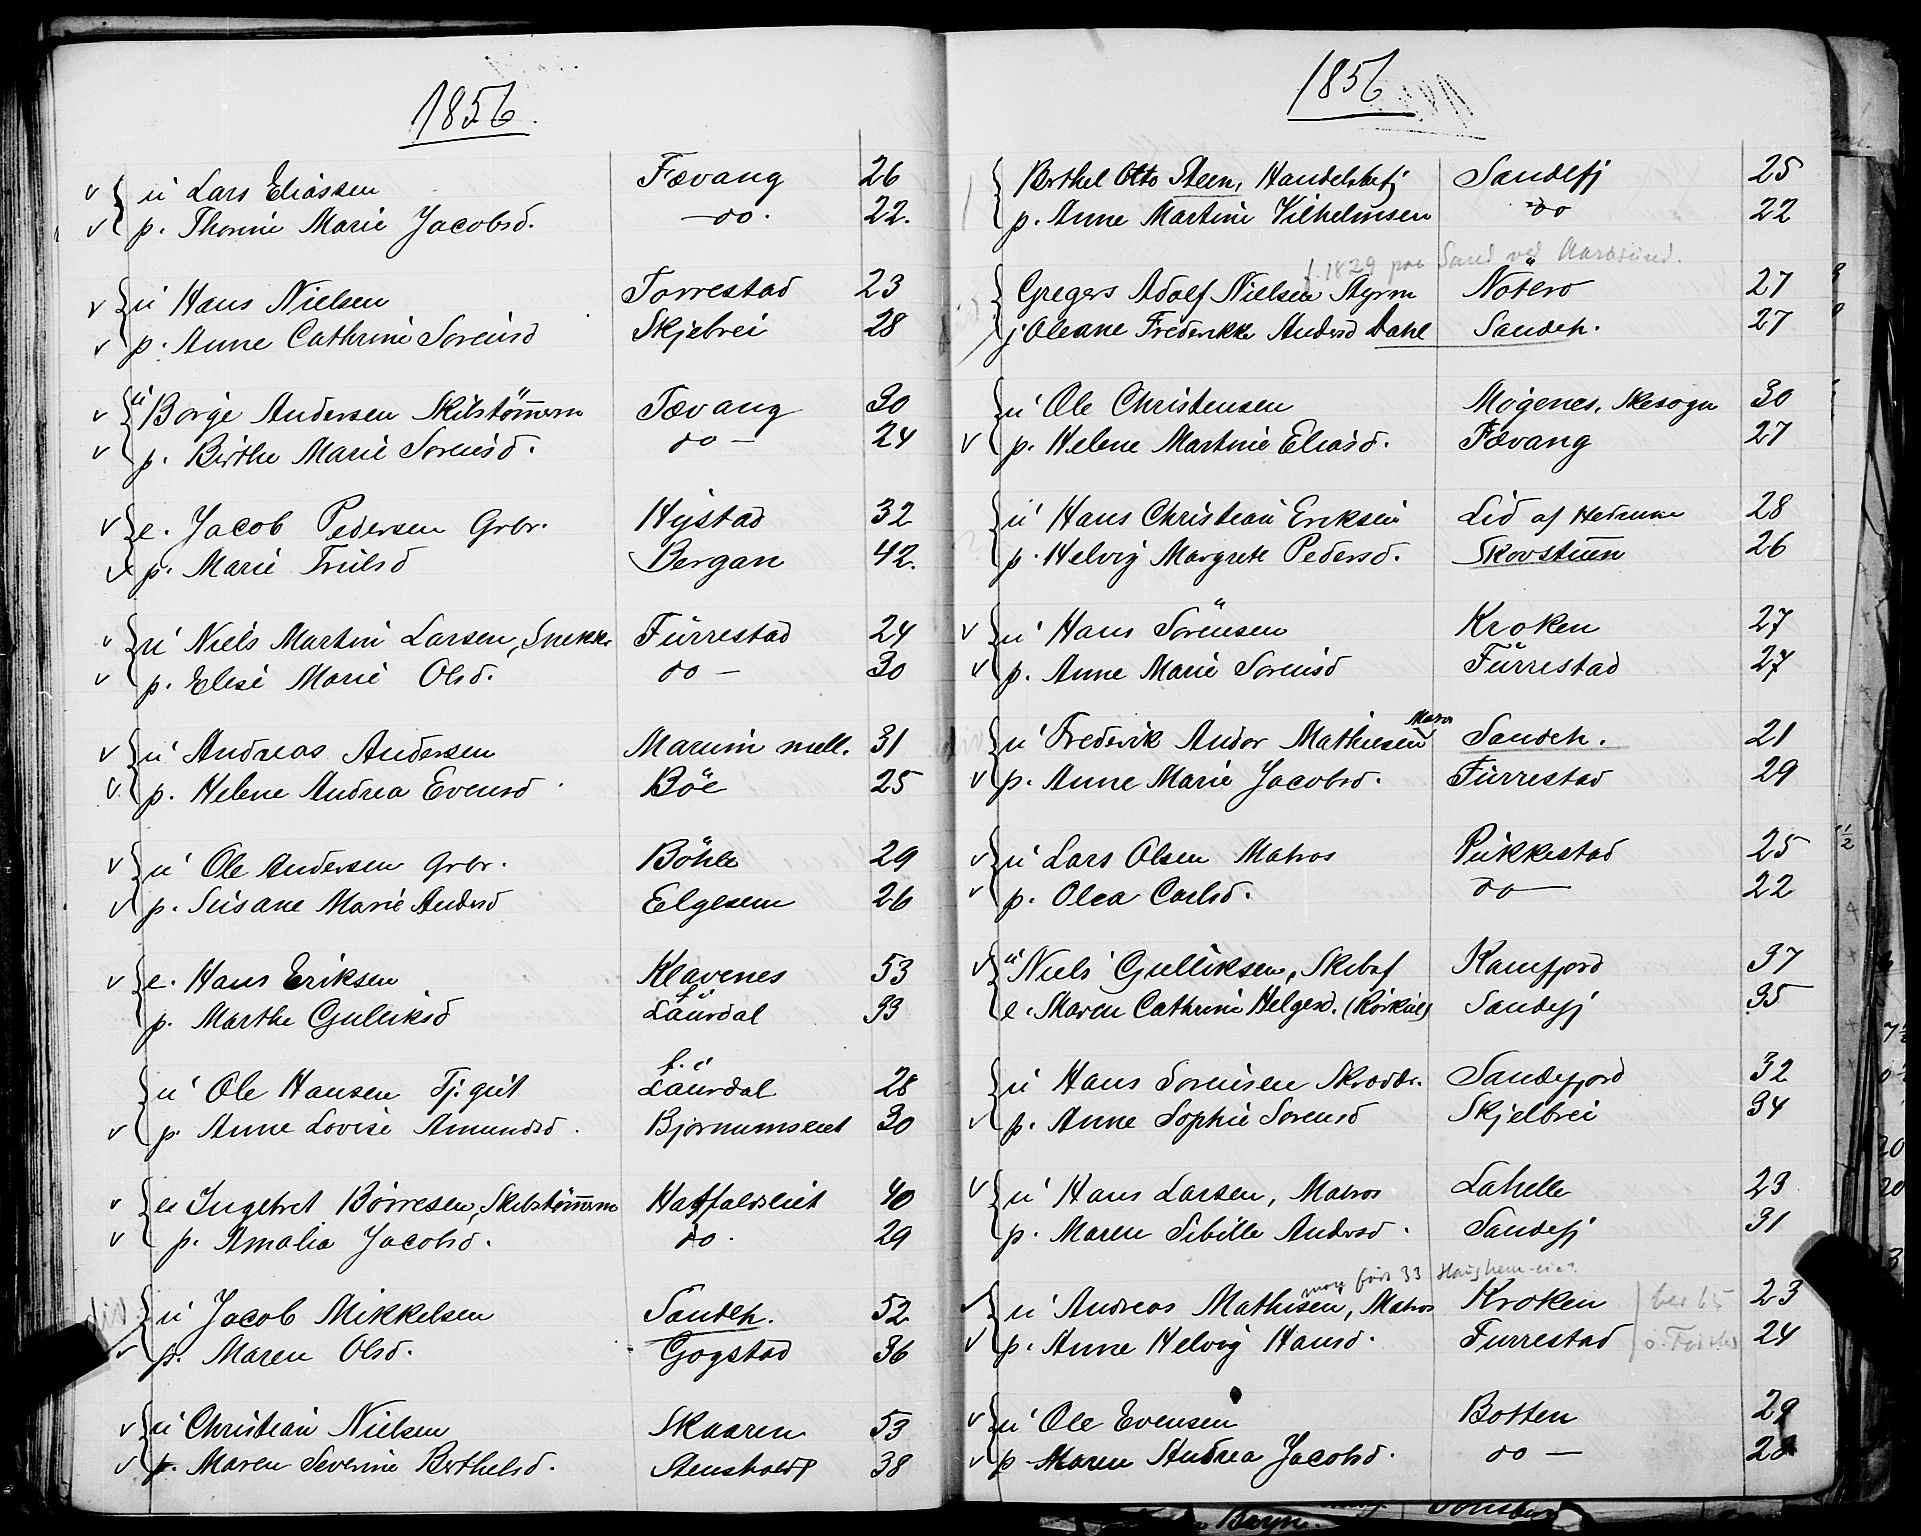 1856.
u Lars Eliassen Fævang 26
p. Thorine Marie Jacobsd. —do. 22.
u Hans Nielsen Torrestad 23
p. Anne Cathrine Sorensd Skjebrei 28
u Borge Andersen Skibstömmerm Fævang 30
p. Birthe Marie Sorensd. do — 24
e. Jacob Pedersen Grbr. Hystad 32
p. Marie Trulsd Bergan 42.
u Niels Martin Larsen, Snekker Furrestad 24
p. Elise Marie Olsd. do — 30
u Andreas Andersen Marum mell. 31
p. Helene Andrea Evensd Böe 25
u Ole Andersen Grbr. Böhle 29
p. Susane Marie Andersd Elgesem 26
e. Hans Eriksen Klavenes 53
p. Marthe Gulliksd Laurdal 33
u Ole Hansen Tj. gut Laurdal 28
p. Anne Lovise Amundsd. Bjornumseiet 30
e Ingebret Börresen, Skibstömmerm Haffaldseiet 40
p. Amalia Jacobsd. do. 29
u Jacob Mikkelsen Sandeh. 52
p. Maren Olsd. Gogstad 36
u Christian Nielsen Skaaren 53
p. Maren Severine Berthelsd. Stensholdt 38
1856
Berthel Otto Steen, Handelsbefj Sandefj 25
p. Anne Martine Vilhelmsen do 22
f. 1829 paa Sand ved Aarøsund.
Gregers Adolf Nielsen Styrm Nöterø 27
j Oleane Frederikke Andersd Dahl Sandeh. 27
u Ole Christensen Mogenes, Skesogn 30
p. Helene Martine Eliasd. Fævang 27
u Hans Christian Eriksen Lid af Hedrum 28
p. Helvig Margrete Pedersd. Skovstuen 26
u Hans Sörensen Kroken 27
p. Anne Marie Sorensd Furrestad 27
u Frederik Andor Mathiesen Matros Sandeh. 21
p. Anne Marie Jacobsd. Furrestad 29
u Lars Olsen Matros Pukkestad 25
p. Olea Carlsd. do — 22
u Niels Gulliksen, Skibsf Kamfjord 37
e. Maren Cathrine Helgesd. Sandefj 35
u Hans Sorensen Skrædder. Sandefjord 32
p. Anne Sophie Sorensd Skjelbrei 34
u Hans Larsen, Matros Lahelle 23
p. Maren Sibille Andersd. Sandefj 31
født 33
u Andreas Mathisen, Matros Kroken 23
p. Anne Helvig Hansd. Furrestad 24
u Ole Evensen Botten 29
p Maren Andrea Jacobsd. do —